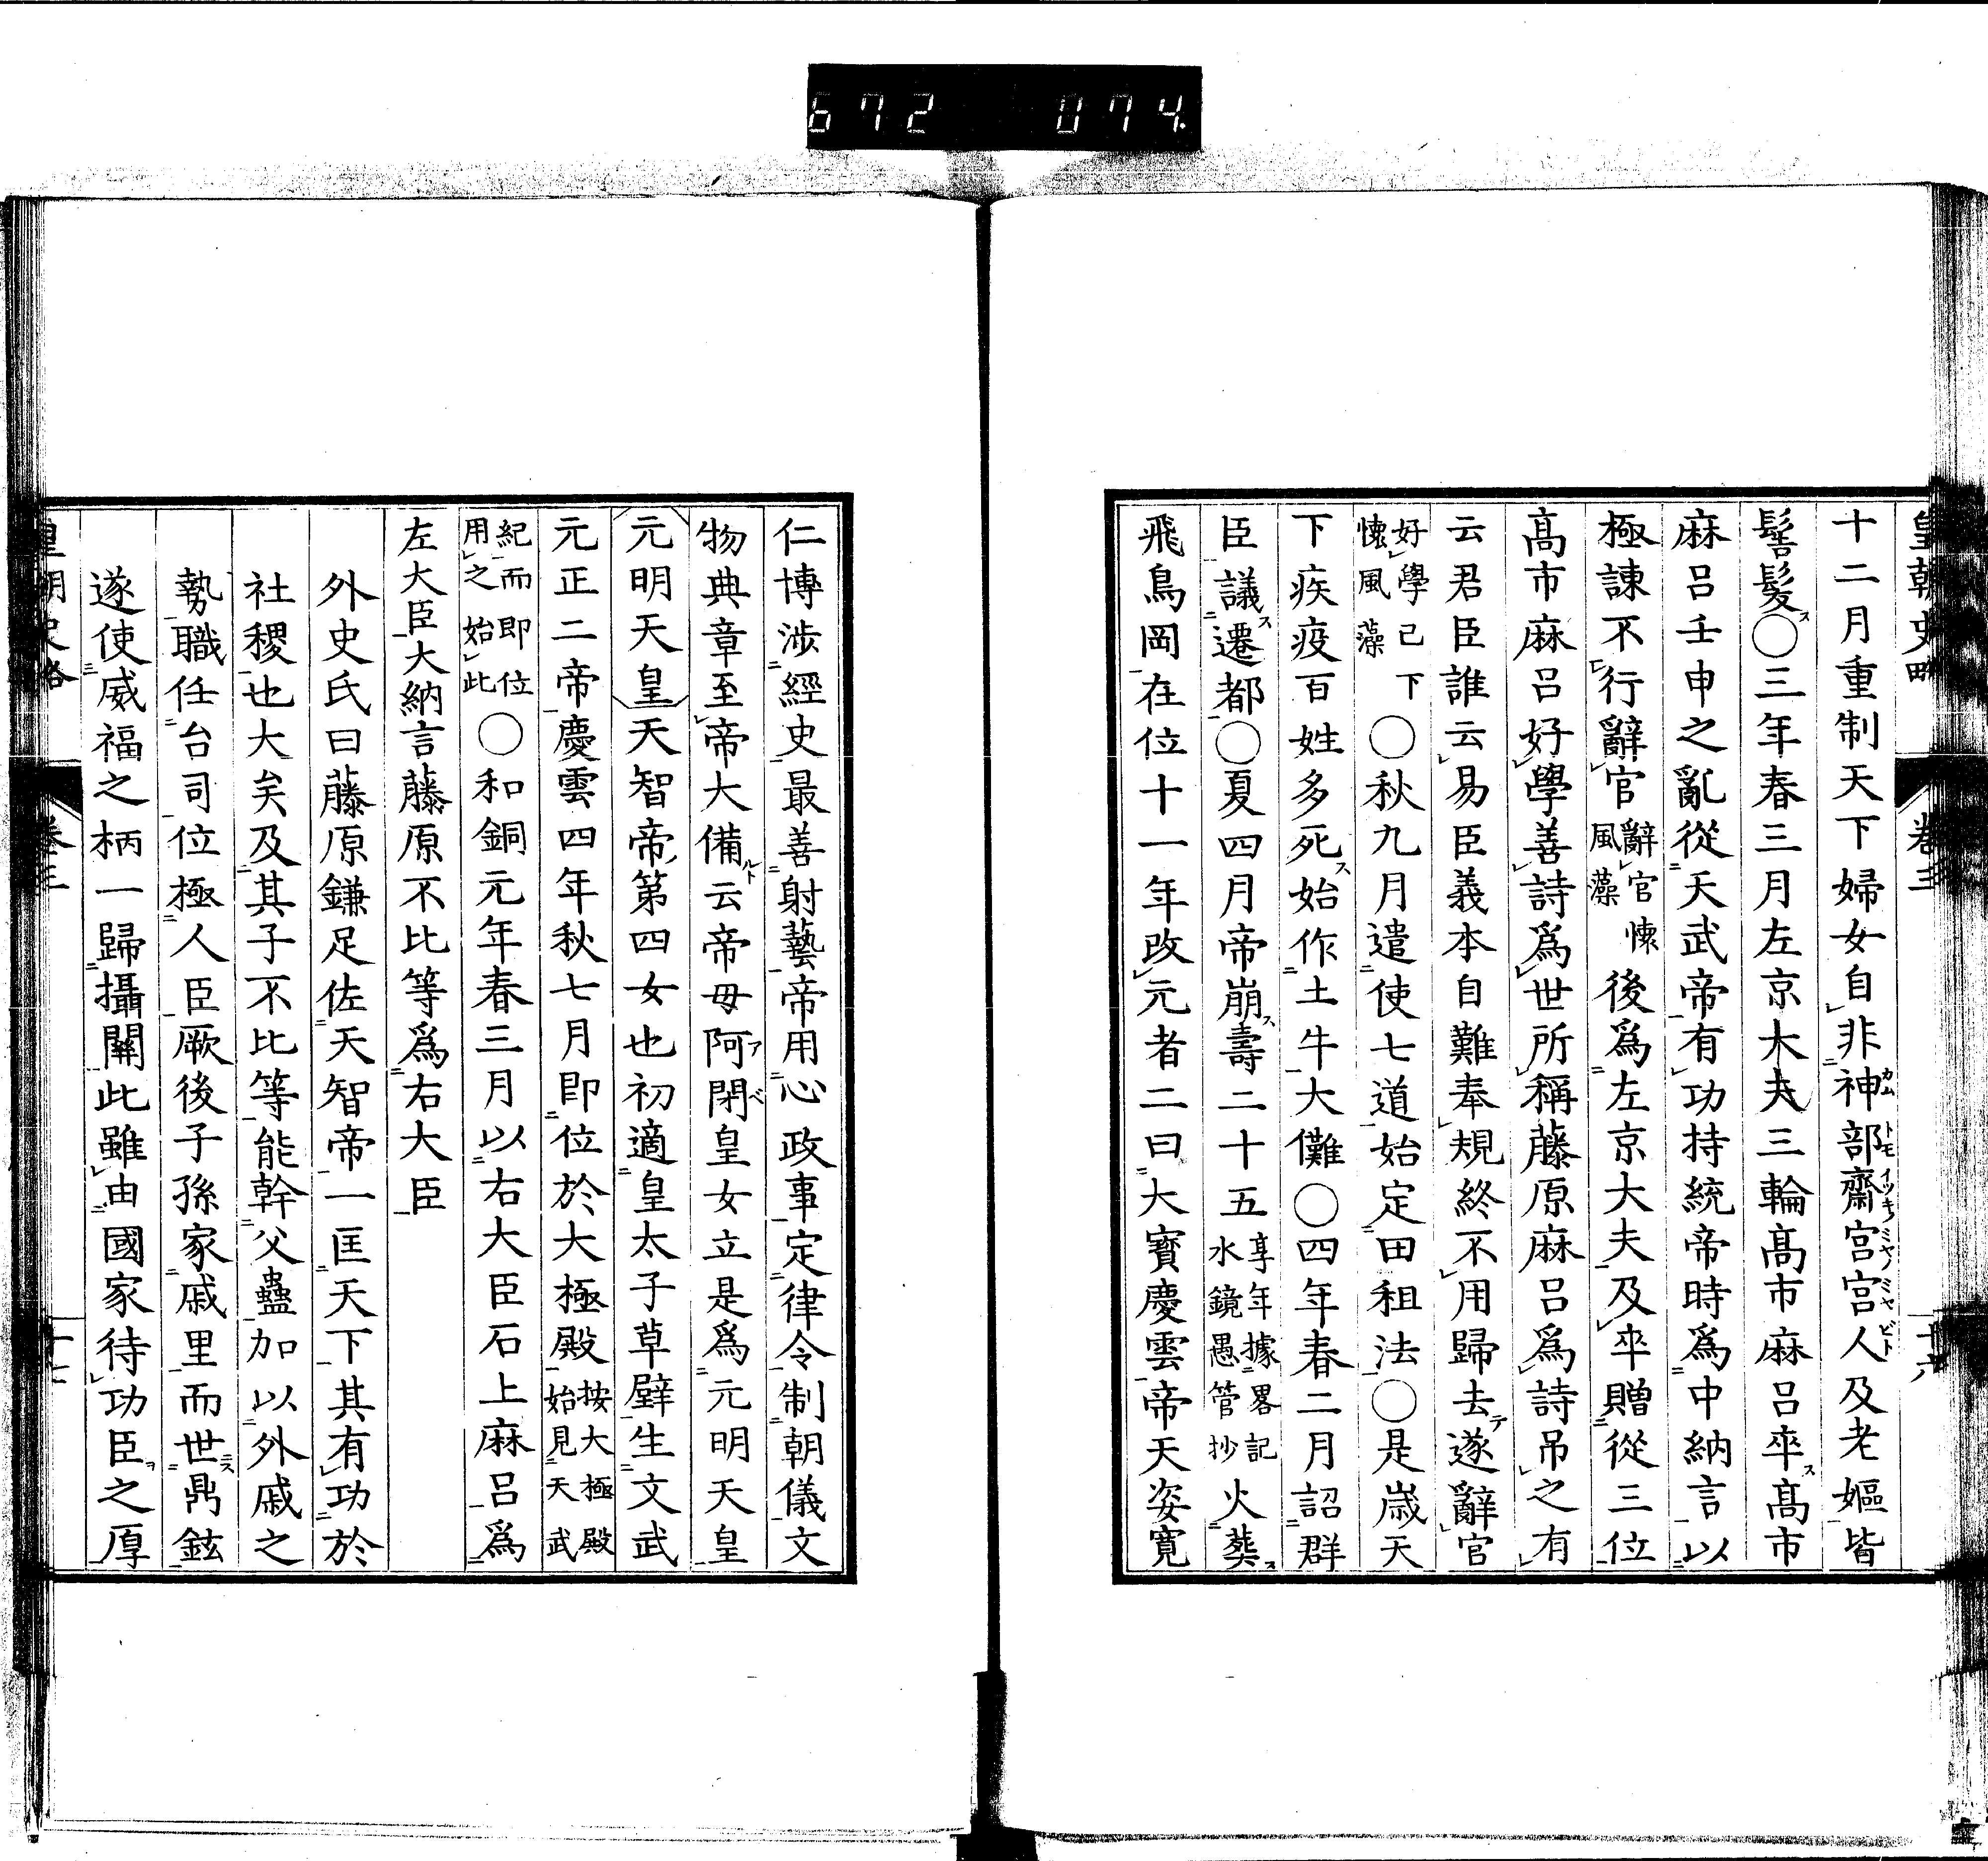 672 074
皇朝史略 卷三 十六
十二月重制天下婦女自非神部齋宮宮人及老嫗皆
髻髮○三年春三月左京大夫三輪髙市麻呂卒髙市
麻呂壬申之亂從天武帝有功持統帝時爲中納言以
極諫不行辭官辭官懷風藻後爲左京大夫及卒贈從三位
髙市麻呂好學善詩爲世所稱藤原麻呂爲詩吊之有
云君臣誰云易臣義本自難奉規終不用歸去遂辭官
好學已下懷風藻○秋九月遣使七道始定田租法○是歲天
下疾疫百姓多死始作土牛大儺○四年春二月詔群
臣議遷都○夏四月帝崩壽二十五享年據畧記水鏡愚管抄火葬
飛鳥岡在位十一年改元者二曰大寳慶雲帝天姿寬
仁博涉經史最善射藝帝用心政事定律令制朝儀文
物典章至帝大備云帝母阿閇皇女立是爲元明天皇
元明天皇天智帝第四女也初適皇太子草壁生文武
元正二帝慶雲四年秋七月即位於大極殿按大極殿始見天武
紀而即位用之始此○和銅元年春三月以右大臣石上麻呂爲
左大臣大納言藤原不比等爲右大臣
外史氏曰藤原鎌足佐天智帝一匡天下其有功於
社稷也大矣及其子不比等能幹父蠱加以外戚之
勢職任台司位極人臣厥後子孫家戚里而世鼎鉉
遂使威福之柄一歸攝關此雖由國家待功臣之厚
皇朝史略 卷三